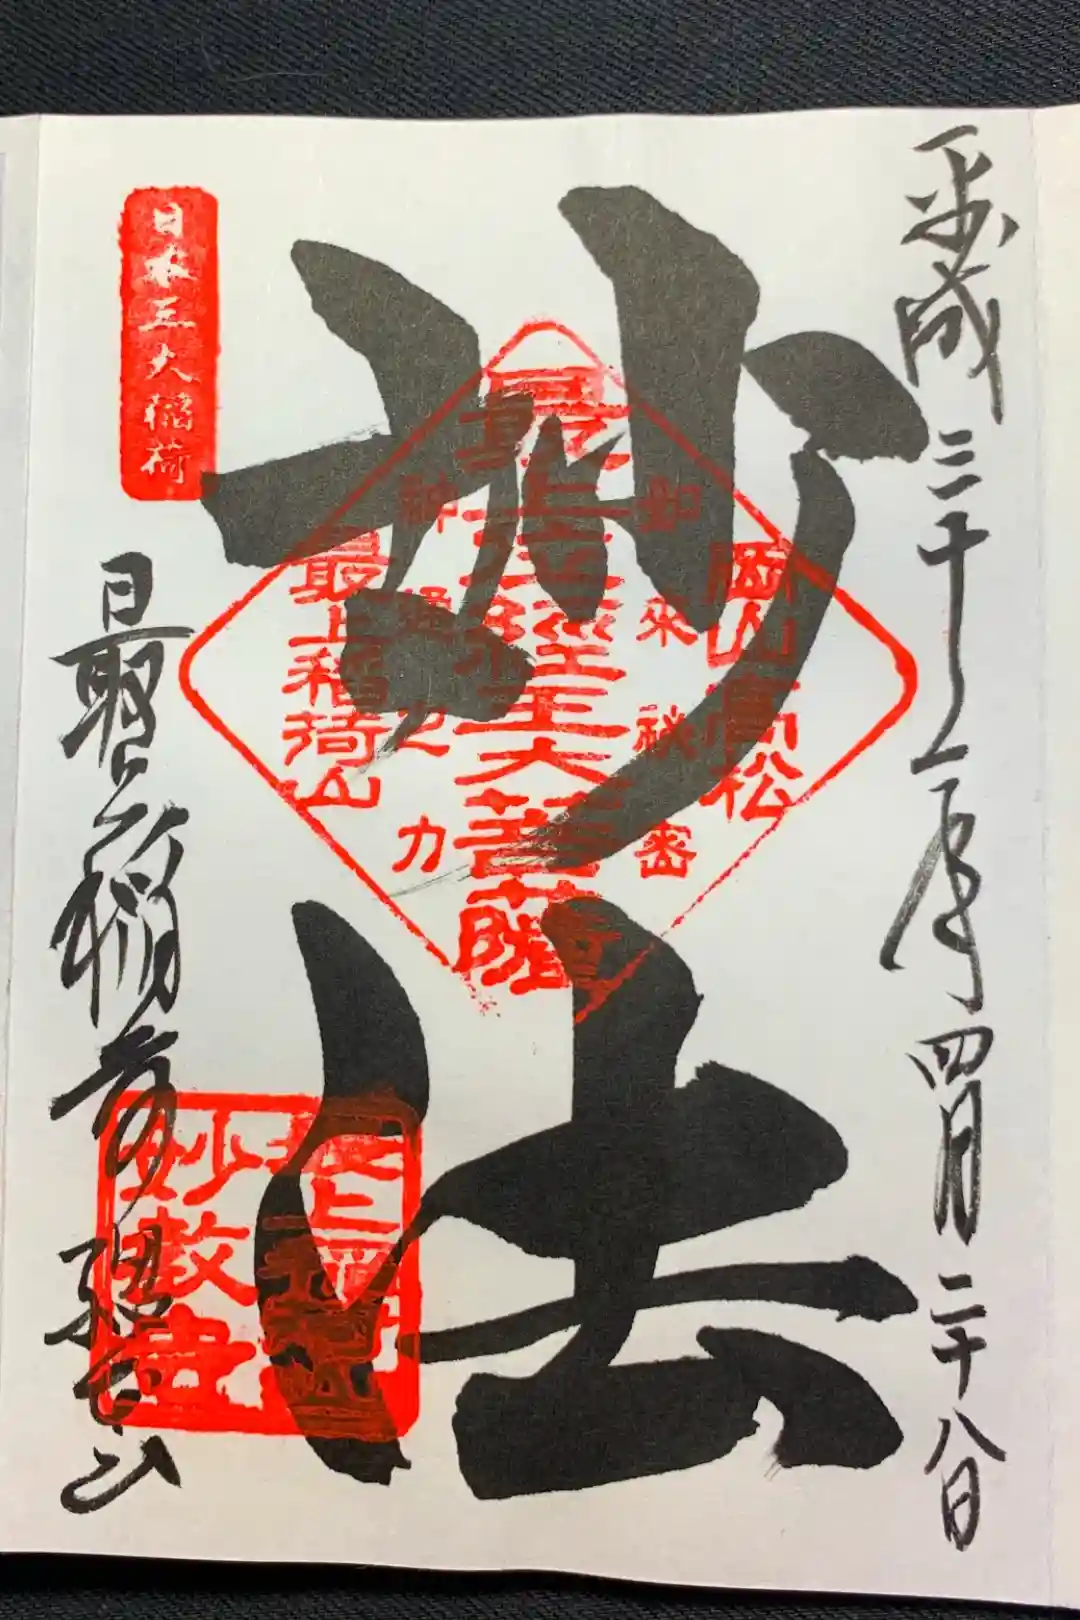 平成三十一年四月二十八日
妙法
岡山高松
如来秘密
最上位経王大菩薩
神通之力
最上稲荷山
日本三大稲荷
最上稲荷総本山
妙教寺